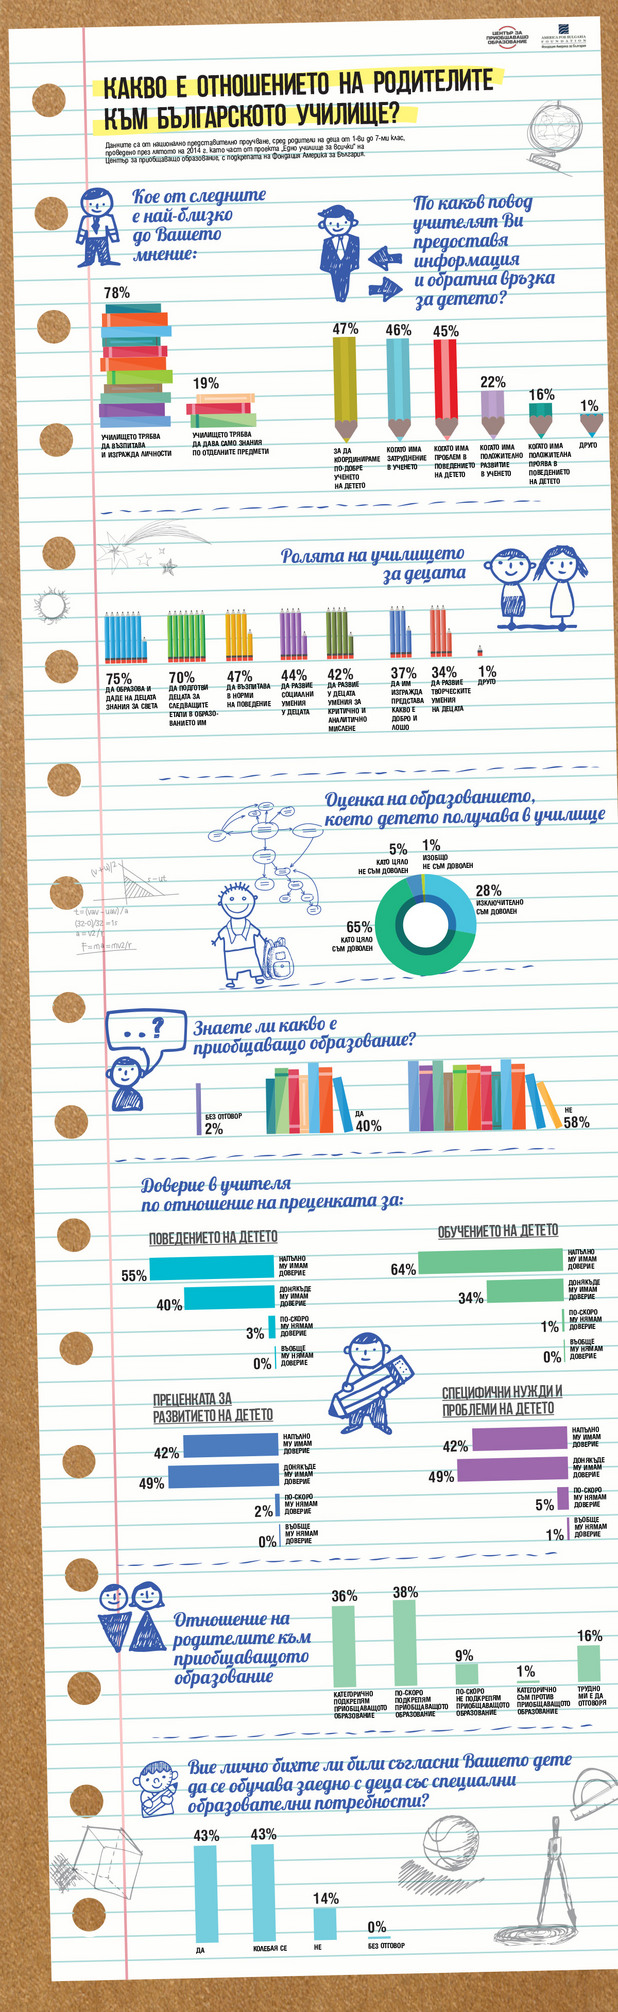 ЦЕНТЪР ЗА
ПРИОБЩАВАЩО
ОБРАЗОВАНИЕ
AMERICA FOR BULGARIA
FOUNDATION
КАКВО Е ОТНОШЕНИЕТО НА РОДИТЕЛИТЕ
КЪМ БЪЛГАРСКОТО УЧИЛИЩЕ?
Данните са от национално представително проучване, сред родители на деца от 1-ви до 7-ми клас,
проведено през лятото на 2014 г. като част от проекта „Едно училище за всички" на
Център за приобщаващо образование, с подкрепата на Фондация Америка за България.
Кое от следните
е най-близко
до Вашето
мнение:
78%
19%
УЧИЛИЩЕТО ТРЯБВА
ДА ВЪЗПИТАВА
И ИЗГРАЖДА ЛИЧНОСТИ
УЧИЛИЩЕТО ТРЯБВА
ДА ДАВА САМО ЗНАНИЯ
ПО ОТДЕЛНИТЕ ПРЕДМЕТИ
По какъв повод
учителят Ви
предоставя
информация
и обратна връзка
за детето?
47%
46%
45%
22%
16%
1%
ЗА ДА
КООРДИНИРАМЕ
ПО-ДОБРЕ
УЧЕНЕТО
НА ДЕТЕТО
КОГАТО ИМА
ЗАТРУДНЕНИЕ
В УЧЕНЕТО
КОГАТО ИМА
ПРОБЛЕМ В
ПОВЕДЕНИЕТО
НА ДЕТЕТО
КОГАТО ИМА
ПОЛОЖИТЕЛНО
РАЗВИТИЕ
В УЧЕНЕТО
КОГАТО ИМА
ПОЛОЖИТЕЛНА
ПРОЯВА В
ПОВЕДЕНИЕТО
НА ДЕТЕТО
ДРУГО
Ролята на училището
за децата
75%
ДА ОБРАЗОВА И
ДАДЕ НА ДЕЦАТА
ЗНАНИЯ ЗА СВЕТА
70%
ДА ПОДГОТВИ
ДЕЦАТА ЗА
СЛЕДВАЩИТЕ
ЕТАПИ В ОБРАЗО-
ВАНИЕТО ИМ
47%
ДА ВЪЗПИТАВА
В НОРМИ
НА ПОВЕДЕНИЕ
44%
ДА РАЗВИЕ
СОЦИАЛНИ
УМЕНИЯ
У ДЕЦАТА
42%
ДА РАЗВИЕ
У ДЕЦАТА
УМЕНИЯ ЗА
КРИТИЧНО И
АНАЛИТИЧНО
МИСЛЕНЕ
37%
ДА ИМ
ИЗГРАЖДА
ПРЕДСТАВА
КАКВО Е
ДОБРО И
ЛОШО
34%
ДА РАЗВИЕ
ТВОРЧЕСКИТЕ
УМЕНИЯ
НА ДЕЦАТА
1%
ДРУГО
Оценка на образованието,
което детето получава в училище
5%
КАТО ЦЯЛО
НЕ СЪМ ДОВОЛЕН
1%
ИЗОБЩО
НЕ СЪМ ДОВОЛЕН
28%
ИЗКЛЮЧИТЕЛНО
СЪМ ДОВОЛЕН
65%
КАТО ЦЯЛО
СЪМ ДОВОЛЕН
..?
Знаете ли какво е
приобщаващо образование?
БЕЗ ОТГОВОР
2%
ДА
40%
НЕ
58%
Доверие в учителя
по отношение на преценката за:
ПОВЕДЕНИЕТО НА ДЕТЕТО
55%
НАПЪЛНО
МУ ИМАМ
ДОВЕРИЕ
40%
ДОНЯКЪДЕ
МУ ИМАМ
ДОВЕРИЕ
3%
ПО-СКОРО
МУ НЯМАМ
ДОВЕРИЕ
0%
ВЪОБЩЕ
МУ НЯМАМ
ДОВЕРИЕ
ОБУЧЕНИЕТО НА ДЕТЕТО
64%
НАПЪЛНО
МУ ИМАМ
ДОВЕРИЕ
34%
ДОНЯКЪДЕ
МУ ИМАМ
ДОВЕРИЕ
1%
ПО-СКОРО
МУ НЯМАМ
ДОВЕРИЕ
0%
ВЪОБЩЕ
МУ НЯМАМ
ДОВЕРИЕ
ПРЕЦЕНКАТА ЗА
РАЗВИТИЕТО НА ДЕТЕТО
42%
НАПЪЛНО
МУ ИМАМ
ДОВЕРИЕ
49%
ДОНЯКЪДЕ
МУ ИМАМ
ДОВЕРИЕ
2%
ПО-СКОРО
МУ НЯМАМ
ДОВЕРИЕ
0%
ВЪОБЩЕ
МУ НЯМАМ
ДОВЕРИЕ
СПЕЦИФИЧНИ НУЖДИ И
ПРОБЛЕМИ НА ДЕТЕТО
42%
НАПЪЛНО
МУ ИМАМ
ДОВЕРИЕ
49%
ДОНЯКЪДЕ
МУ ИМАМ
ДОВЕРИЕ
5%
ПО-СКОРО
МУ НЯМАМ
ДОВЕРИЕ
1%
ВЪОБЩЕ
МУ НЯМАМ
ДОВЕРИЕ
Отношение на
родителите към
приобщаващото
образование
36%
КАТЕГОРИЧНО
ПОДКРЕПЯМ
ПРИОБЩАВАЩОТО
ОБРАЗОВАНИЕ
38%
ПО-СКОРО
ПОДКРЕПЯМ
ПРИОБЩАВАЩОТО
ОБРАЗОВАНИЕ
9%
ПО-СКОРО
НЕ ПОДКРЕПЯМ
ПРИОБЩАВАЩОТО
ОБРАЗОВАНИЕ
1%
КАТЕГОРИЧНО
СЪМ ПРОТИВ
ПРИОБЩАВАЩОТО
ОБРАЗОВАНИЕ
16%
ТРУДНО
МИ Е ДА
ОТГОВОРЯ
Вие лично бихте ли били съгласни Вашето дете
да се обучава заедно с деца със специални
образователни потребности?
43%
43%
14%
0%
ДА
КОЛЕБАЯ СЕ
НЕ
БЕЗ ОТГОВОР